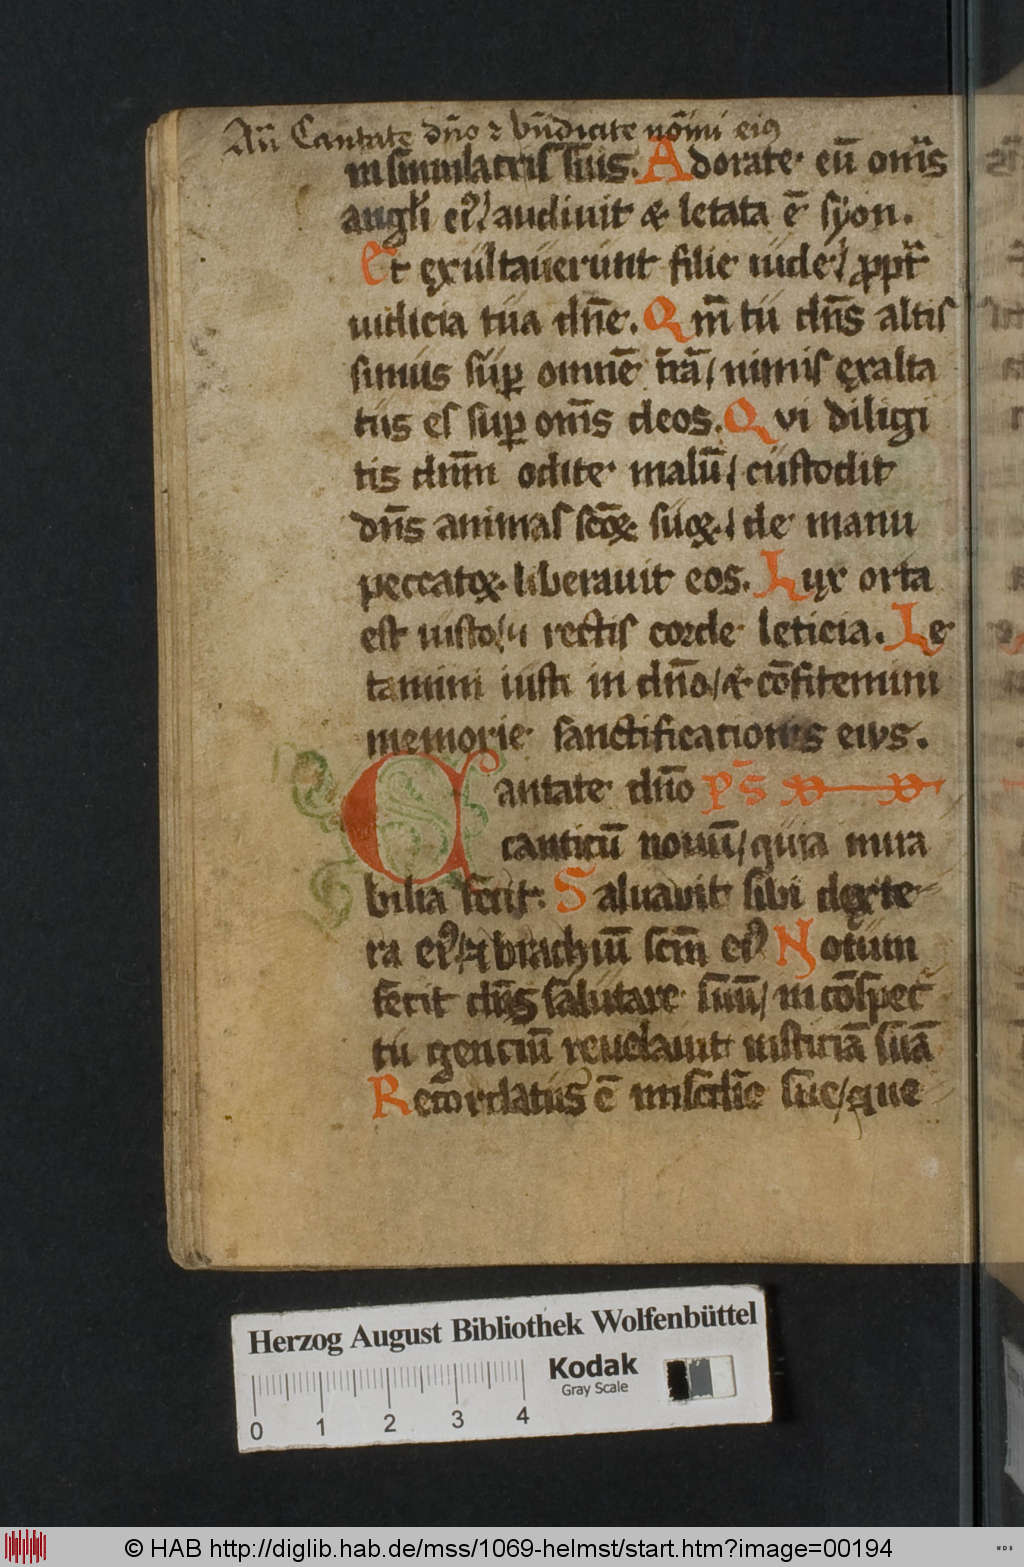 Añ Cantate dño ⁊ bñdicite nõmi eiꝯ
in simulacris suis. Adorate eū om̄s
angl̄i eiꝰ/ audiuit & letata ē syon.
Et exultauerunt filie iude/ ꝓpt̄
iudicia tua dn̄e. Qm̄ tu dn̄s altis
simus suꝑ omnē t̄rā/ nimis exalta
tus es suꝑ om̄s deos. Qvi diligi
tis dn̄m odite malū/ custodit
dn̄s animas scōꝝ suoꝝ/ de manu
peccatoꝝ liberauit eos. Lux orta
est iusto/ ⁊ rectis corde leticia. Le
tamini iusti in dn̄o/ & cōfitemini
memorie sanctificationis eivs.
Cantate dn̄o p̄s
canticū nouū/ quia mira
bilia fecit. Saluauit sibi dexte
ra eiꝰ/ & brachiū scm̄ eiꝰ Notum
fecit dn̄s salutare suū/ in cōspec
tu genciū reuelauit iusticiā suā
Recordatus ē mis̄cdīe sue/ que
Herzog August Bibliothek Wolfenbüttel
Kodak
Gray Scale
0 1 2 3 4
© HAB http://diglib.hab.de/mss/1069-helmst/start.htm?image=00194